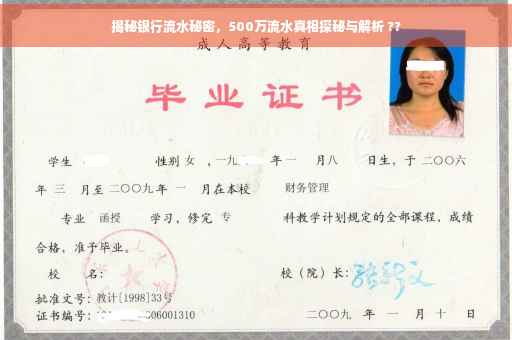 揭秘银行流水秘密，500万流水真相探秘与解析 ??
成人高等教育
毕业证书
学生 性别 女 ，一九 年 一 月八 日生，于 二〇〇六
年 三 月至 二〇〇九 年 一 月在本校 财务管理
专业 函授 学习，修完 专 科教学计划规定的全部课程，成绩
合格，准予毕业。
校 名： 校（院）长：
批准文号：教计[1998]33号
证书编号： 06001310 二〇〇九 年 一 月 十 日